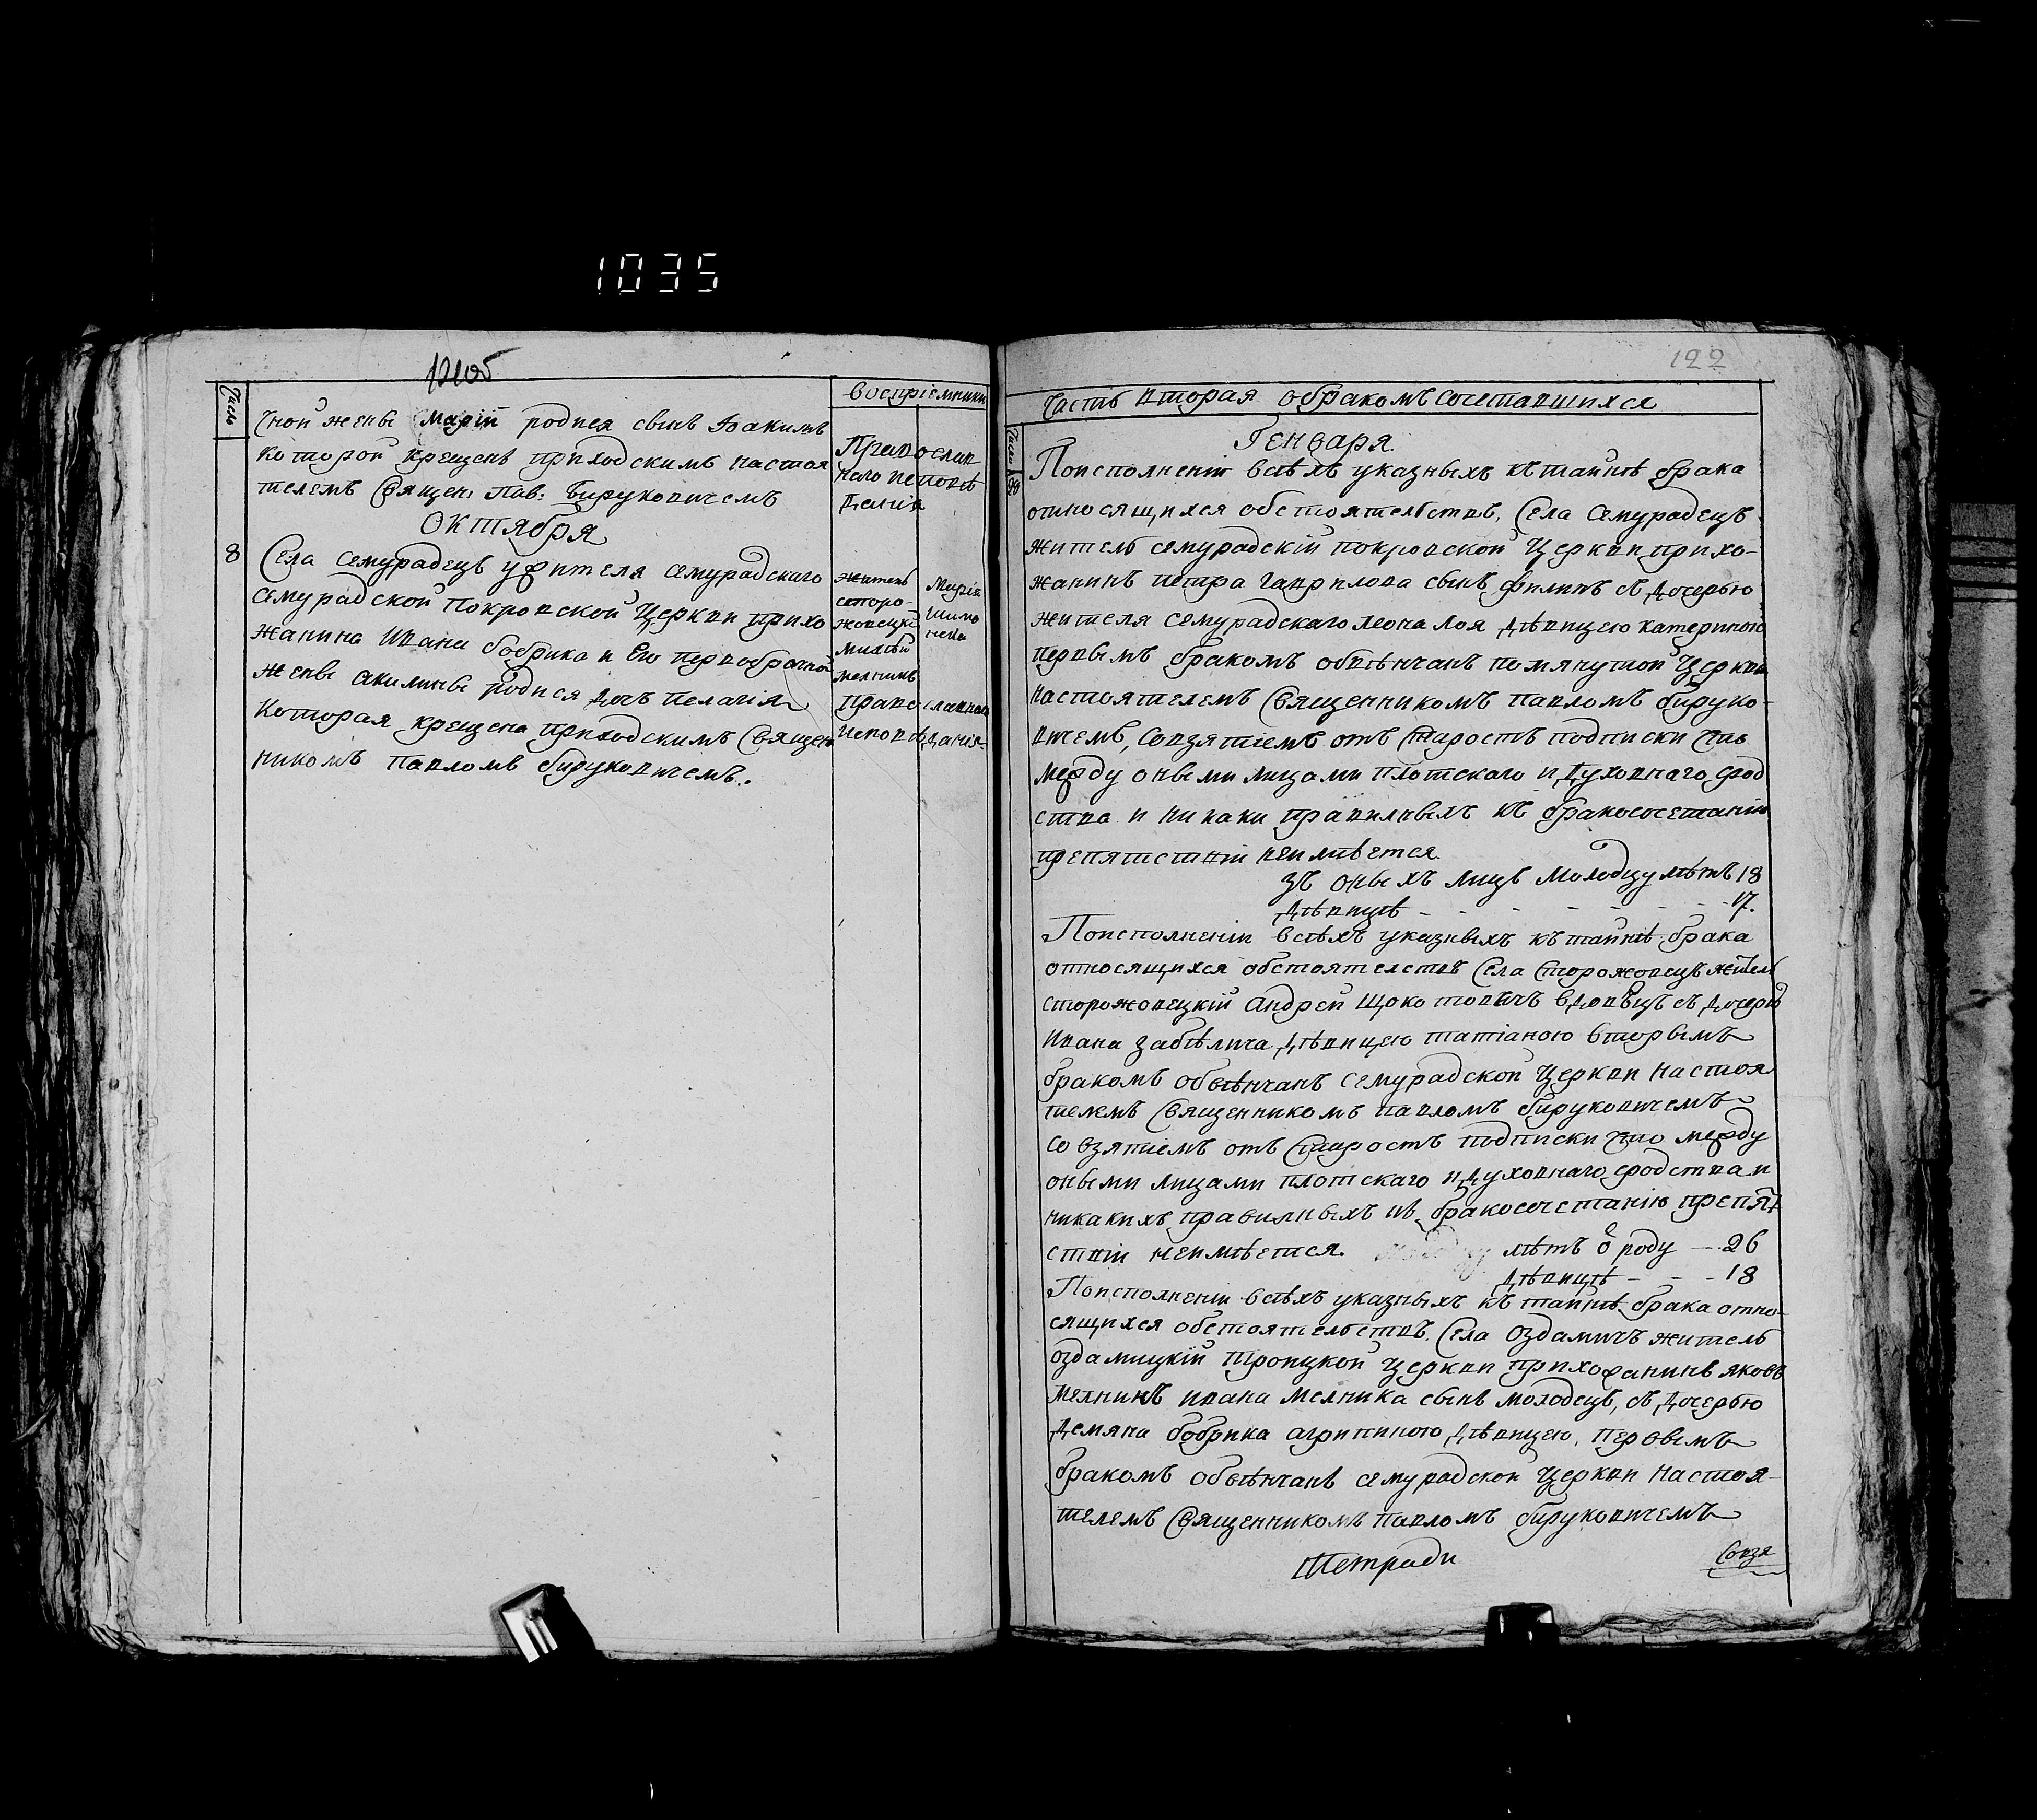 1035
Числа
воспріемники
чной жены Маріи родися сынъ Іоакимъ
которой крещенъ приходскимъ настоя
телемъ Священ: Пав: Бируковичемъ
Православ
наго исповѣ
данія
Октября
8
Села Семурадецъ жителя семурадскаго
семурадской покровской Церкви прихо
жанина Ивана бобрика и Его первобрачной
жены акилины родися дочъ пелагія
которая крещена приходскимъ Священ
никомъ павломъ бируковичемъ.
житель
сторо-
жовецкій
мелникъ
православнаго
исповѣданія
Марія
122
Часть вторая о бракомъ сочетавшихся
Числа
28
Генваря
Поисполненіи всѣхъ указныхъ къ тайнѣ брака
относящихся обстоятельствъ, Села Семурадецъ
житель семурадскій покровской Церкви прихо-
жанинъ петра гаврилова сынъ филипъ съ дочерью
жителя семурадскаго леона лоя дѣвицею катериною
первымъ бракомъ обвѣнчанъ помянутой Церкви
настоятелемъ Священникомъ павломъ бируко-
вичемъ, совзятіемъ отъ старостъ подписки что
между оными лицами плотскаго и духовнаго срод
ства и никаки правилныхъ къ бракосочетанію
препятствій неимѣется.
зъ оныхъ лицъ молодцу лѣтъ 18
дѣвицѣ - - - - - - 17.
Поисполненіи всѣхъ указныхъ къ тайнѣ брака
относящихся обстоятелствъ Села Сторожовецъ житель
сторожовецкій андрей щокотовичъ вдовѣцъ съ дочерю
Ивана забѣлича дѣвицею татіаною вторымъ
бракомъ обвѣнчанъ семурадской Церкви настоя
телемъ Священникомъ павломъ бируковичемъ
со взятіемъ отъ старостъ подписки что между
оными лицами плотскаго и духовнаго сродства и
никакихъ правилныхъ къ бракосочетанію препят
ствій неимѣется. лѣтъ о роду — 26
дѣвицѣ - - - 18
Поисполненіи всѣхъ указныхъ къ тайнѣ брака отно-
сящихся обстоятельствъ. Села Оздамичъ житель
оздамицкій троицкой Церкви прихожанинъ яковъ
мелникъ ивана мелника сынъ молодецъ, съ дочерью
демяна бобрика агрипиною дѣвицею, первымъ
бракомъ обвѣнчанъ семурадской Церкви настоя-
телемъ Священникомъ павломъ бируковичемъ
Тетради
Совзя